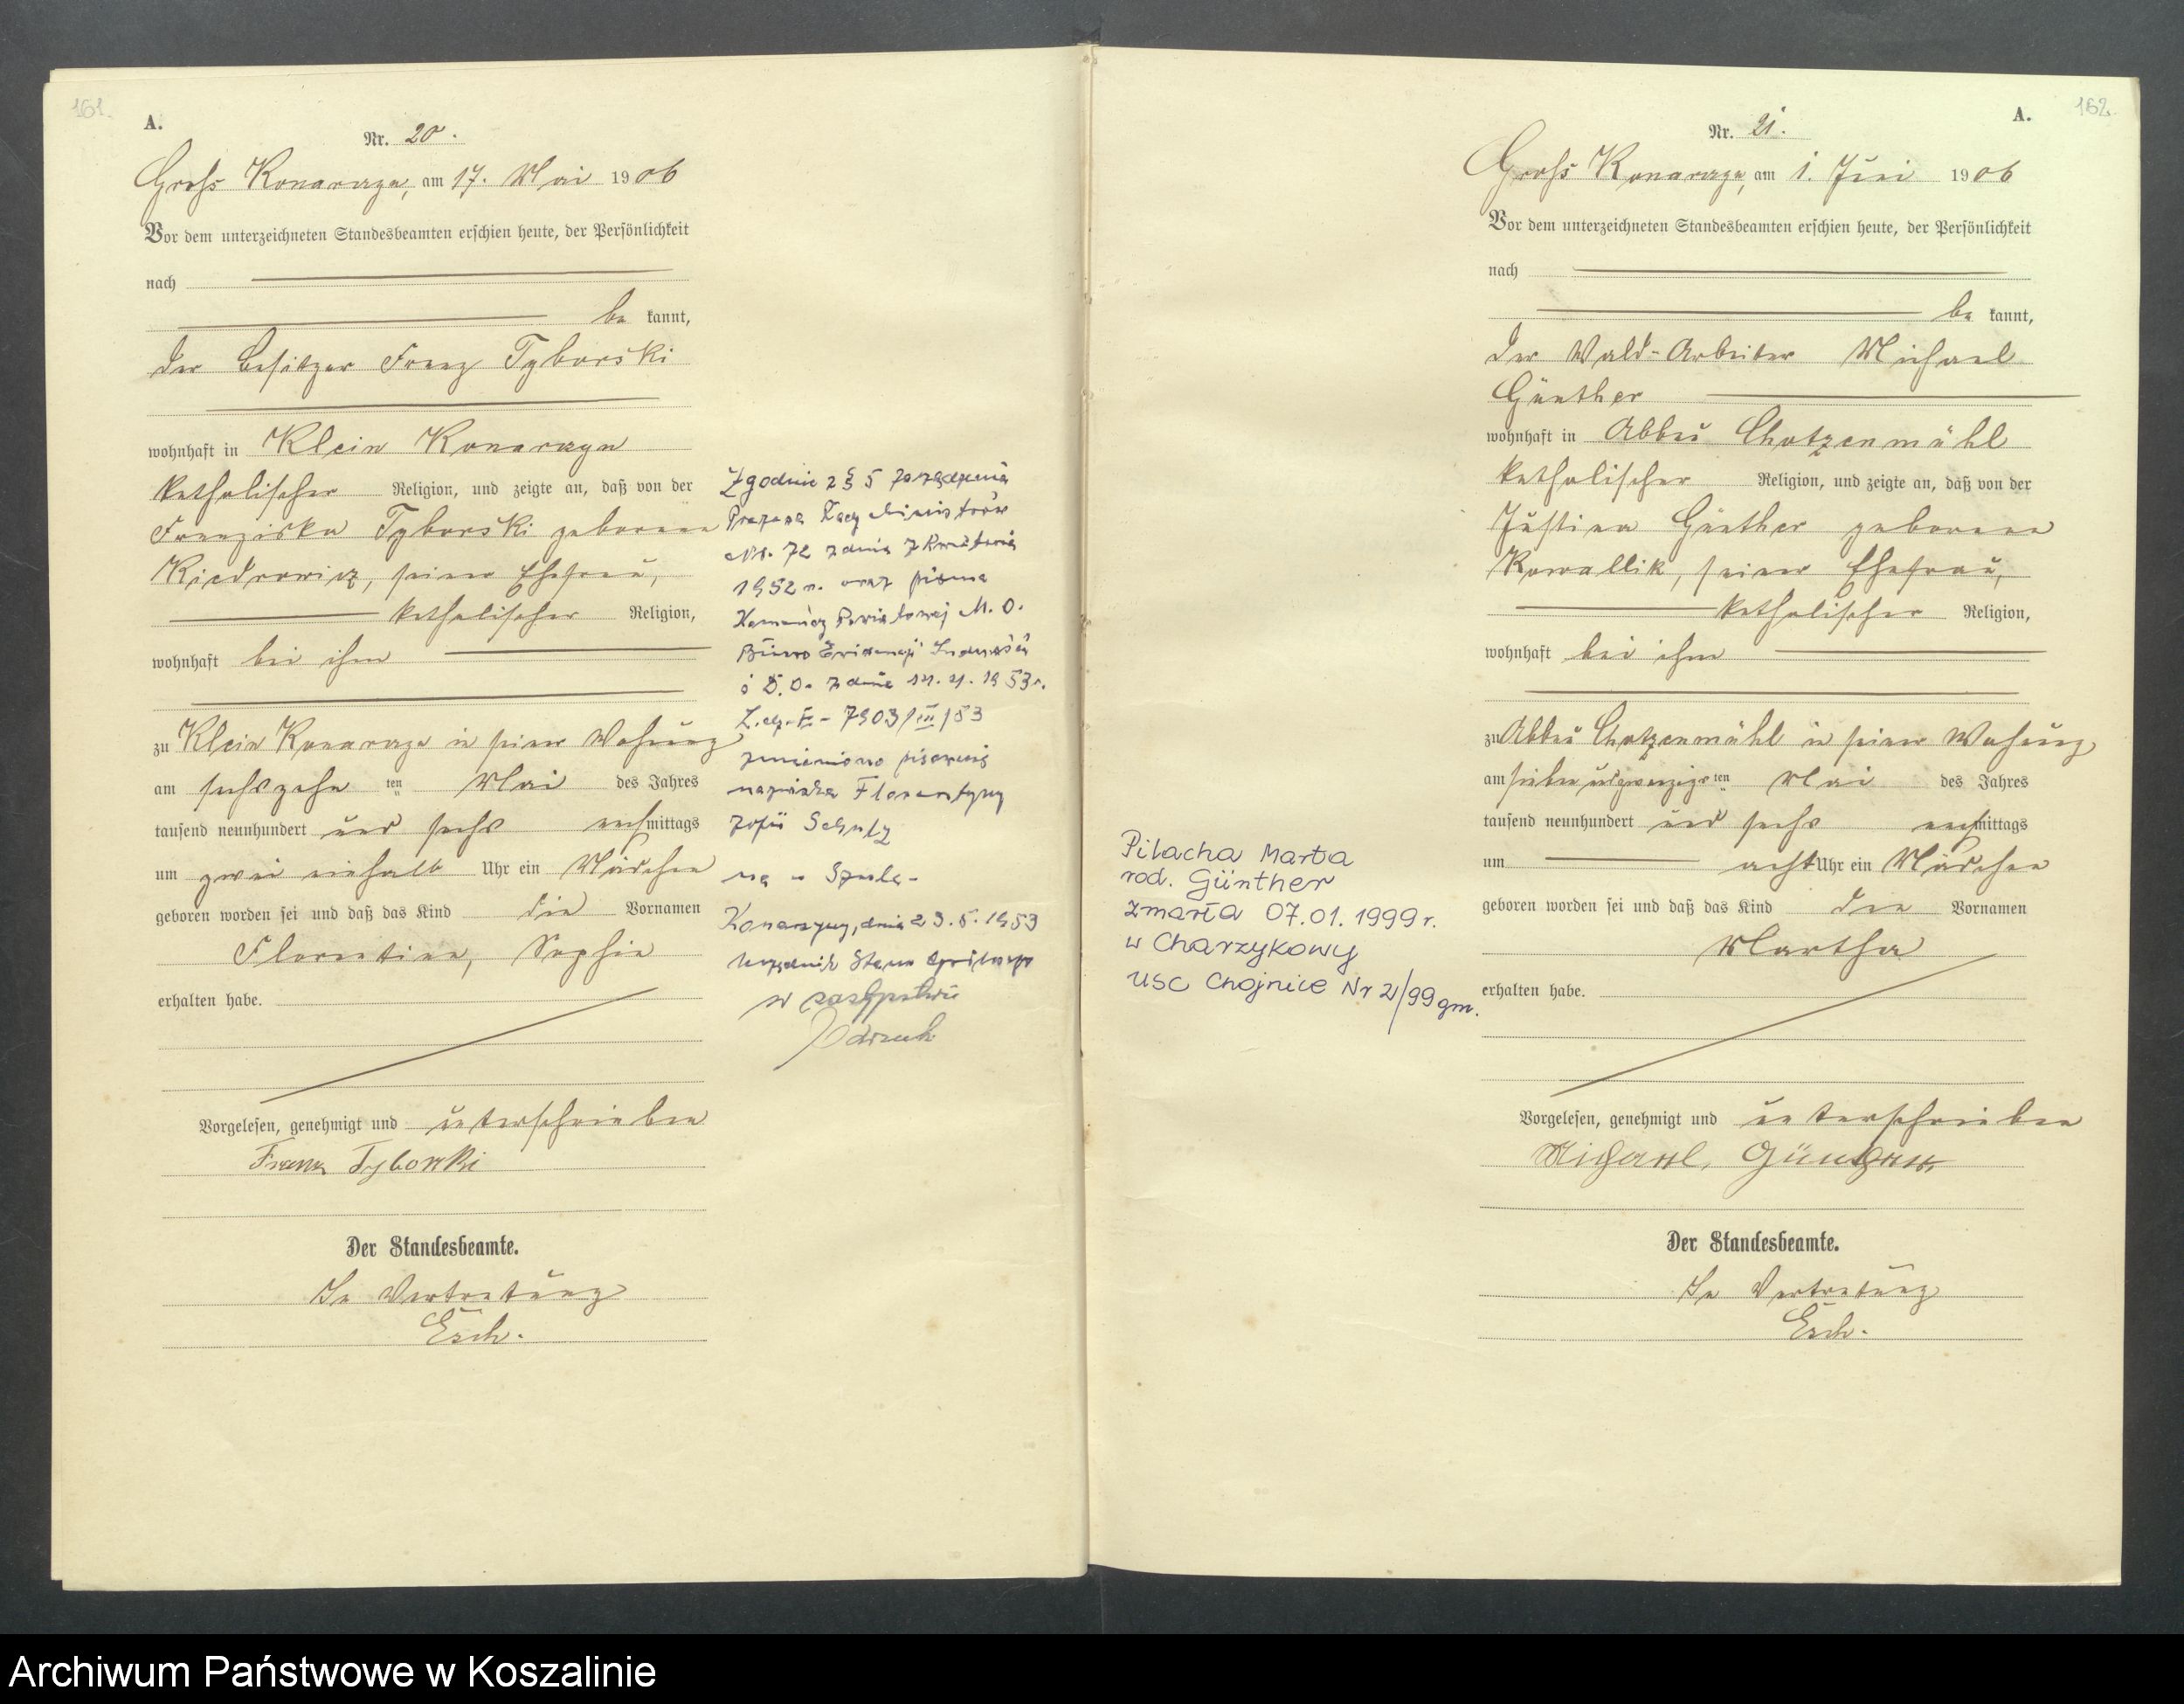 161.
A.
Nr. 20.
Gross Konarzyn, am 17. Mai 1906
Vor dem unterzeichneten Standesbeamten erschien heute, der Persönlichkeit
nach
be kannt,
der Besitzer Franz Tyborski
wohnhaft in Klein Konarzyn
katholischer Religion, und zeigte an, daß von der
Franziska Tyborski geborene
Kiedrowicz, seiner Ehefrau,
katholischer Religion,
wohnhaft bei ihm
zu Klein Konarzyn in seiner Wohnung
am sechszehn ten Mai des Jahres
tausend neunhundert und sechs nachmittags
um zwei einhalb Uhr ein Mädchen
geboren worden sei und daß das Kind die Vornamen
Florentine, Sophie
erhalten habe.
Vorgelesen, genehmigt und unterschrieben
Franz Tyborski
Der Standesbeamte.
In Vertretung
Esch.
Zgodnie z § 5 zarządzenia
Prezesa Rady Ministrów
Nr. 72 z dnia 7 kwietnia
1952 r. oraz pisma
Komendy Powiatowej M. O.
Biuro Ewidencji Ludności
i D. O. z dnia
7903/III/53
zmieniono pisownię
nazwiska Florentyny
Zofii Schulz
na " Szulc-
Konarzyny, dnia 23.5.1953
Urzędnik Stanu Cywilnego
w zastępstwie
162.
A.
Nr. 21.
Gross Konarzyn, am 1. Juni 1906
Vor dem unterzeichneten Standesbeamten erschien heute, der Persönlichkeit
nach
be kannt,
der Wald-Arbeiter Michael
Günther
wohnhaft in Abbau Chotzenmühl
katholischer Religion, und zeigte an, daß von der
Justina Günther geborene
Kowallik, seiner Ehefrau,
katholischer Religion,
wohnhaft bei ihm
zu Abbau Chotzenmühl in seiner Wohnung
am siebenundzwanzigsten Mai des Jahres
tausend neunhundert und sechs nachmittags
um acht Uhr ein Mädchen
geboren worden sei und daß das Kind den Vornamen
Martha
erhalten habe.
Vorgelesen, genehmigt und unterschrieben
Michael, Günther
Der Standesbeamte.
In Vertretung
Esch.
Pilacha Marta
rod. Günther
zmarła 07.01.1999 r.
w Charzykowy
USC Chojnice Nr 2/99 gm.
Archiwum Państwowe w Koszalinie